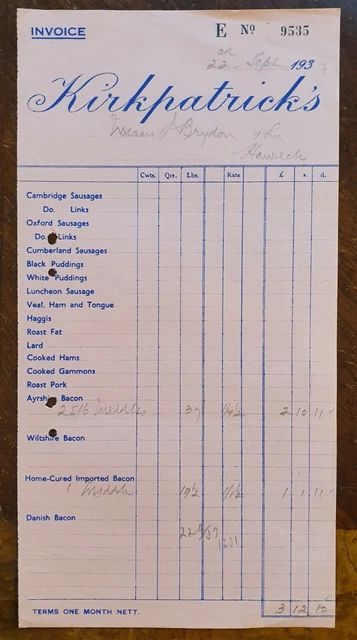 INVOICE
E No 9535
22 Sept 1937
Kirkpatrick's
J Brydon
Hawick
Cwts. Qrs. Lbs. Rate £ s. d.
Cambridge Sausages
Do. Links
Oxford Sausages
Do. Links
Cumberland Sausages
Black Puddings
White Puddings
Luncheon Sausage
Veal, Ham and Tongue
Haggis
Roast Fat
Lard
Cooked Hams
Cooked Gammons
Roast Pork
Ayrshire Bacon
Middles 37 2 10 11
Wiltshire Bacon
Home-Cured Imported Bacon
1 Middle 19½ 1/1½ 1 1 11
Danish Bacon
3 12 10
TERMS ONE MONTH NETT.